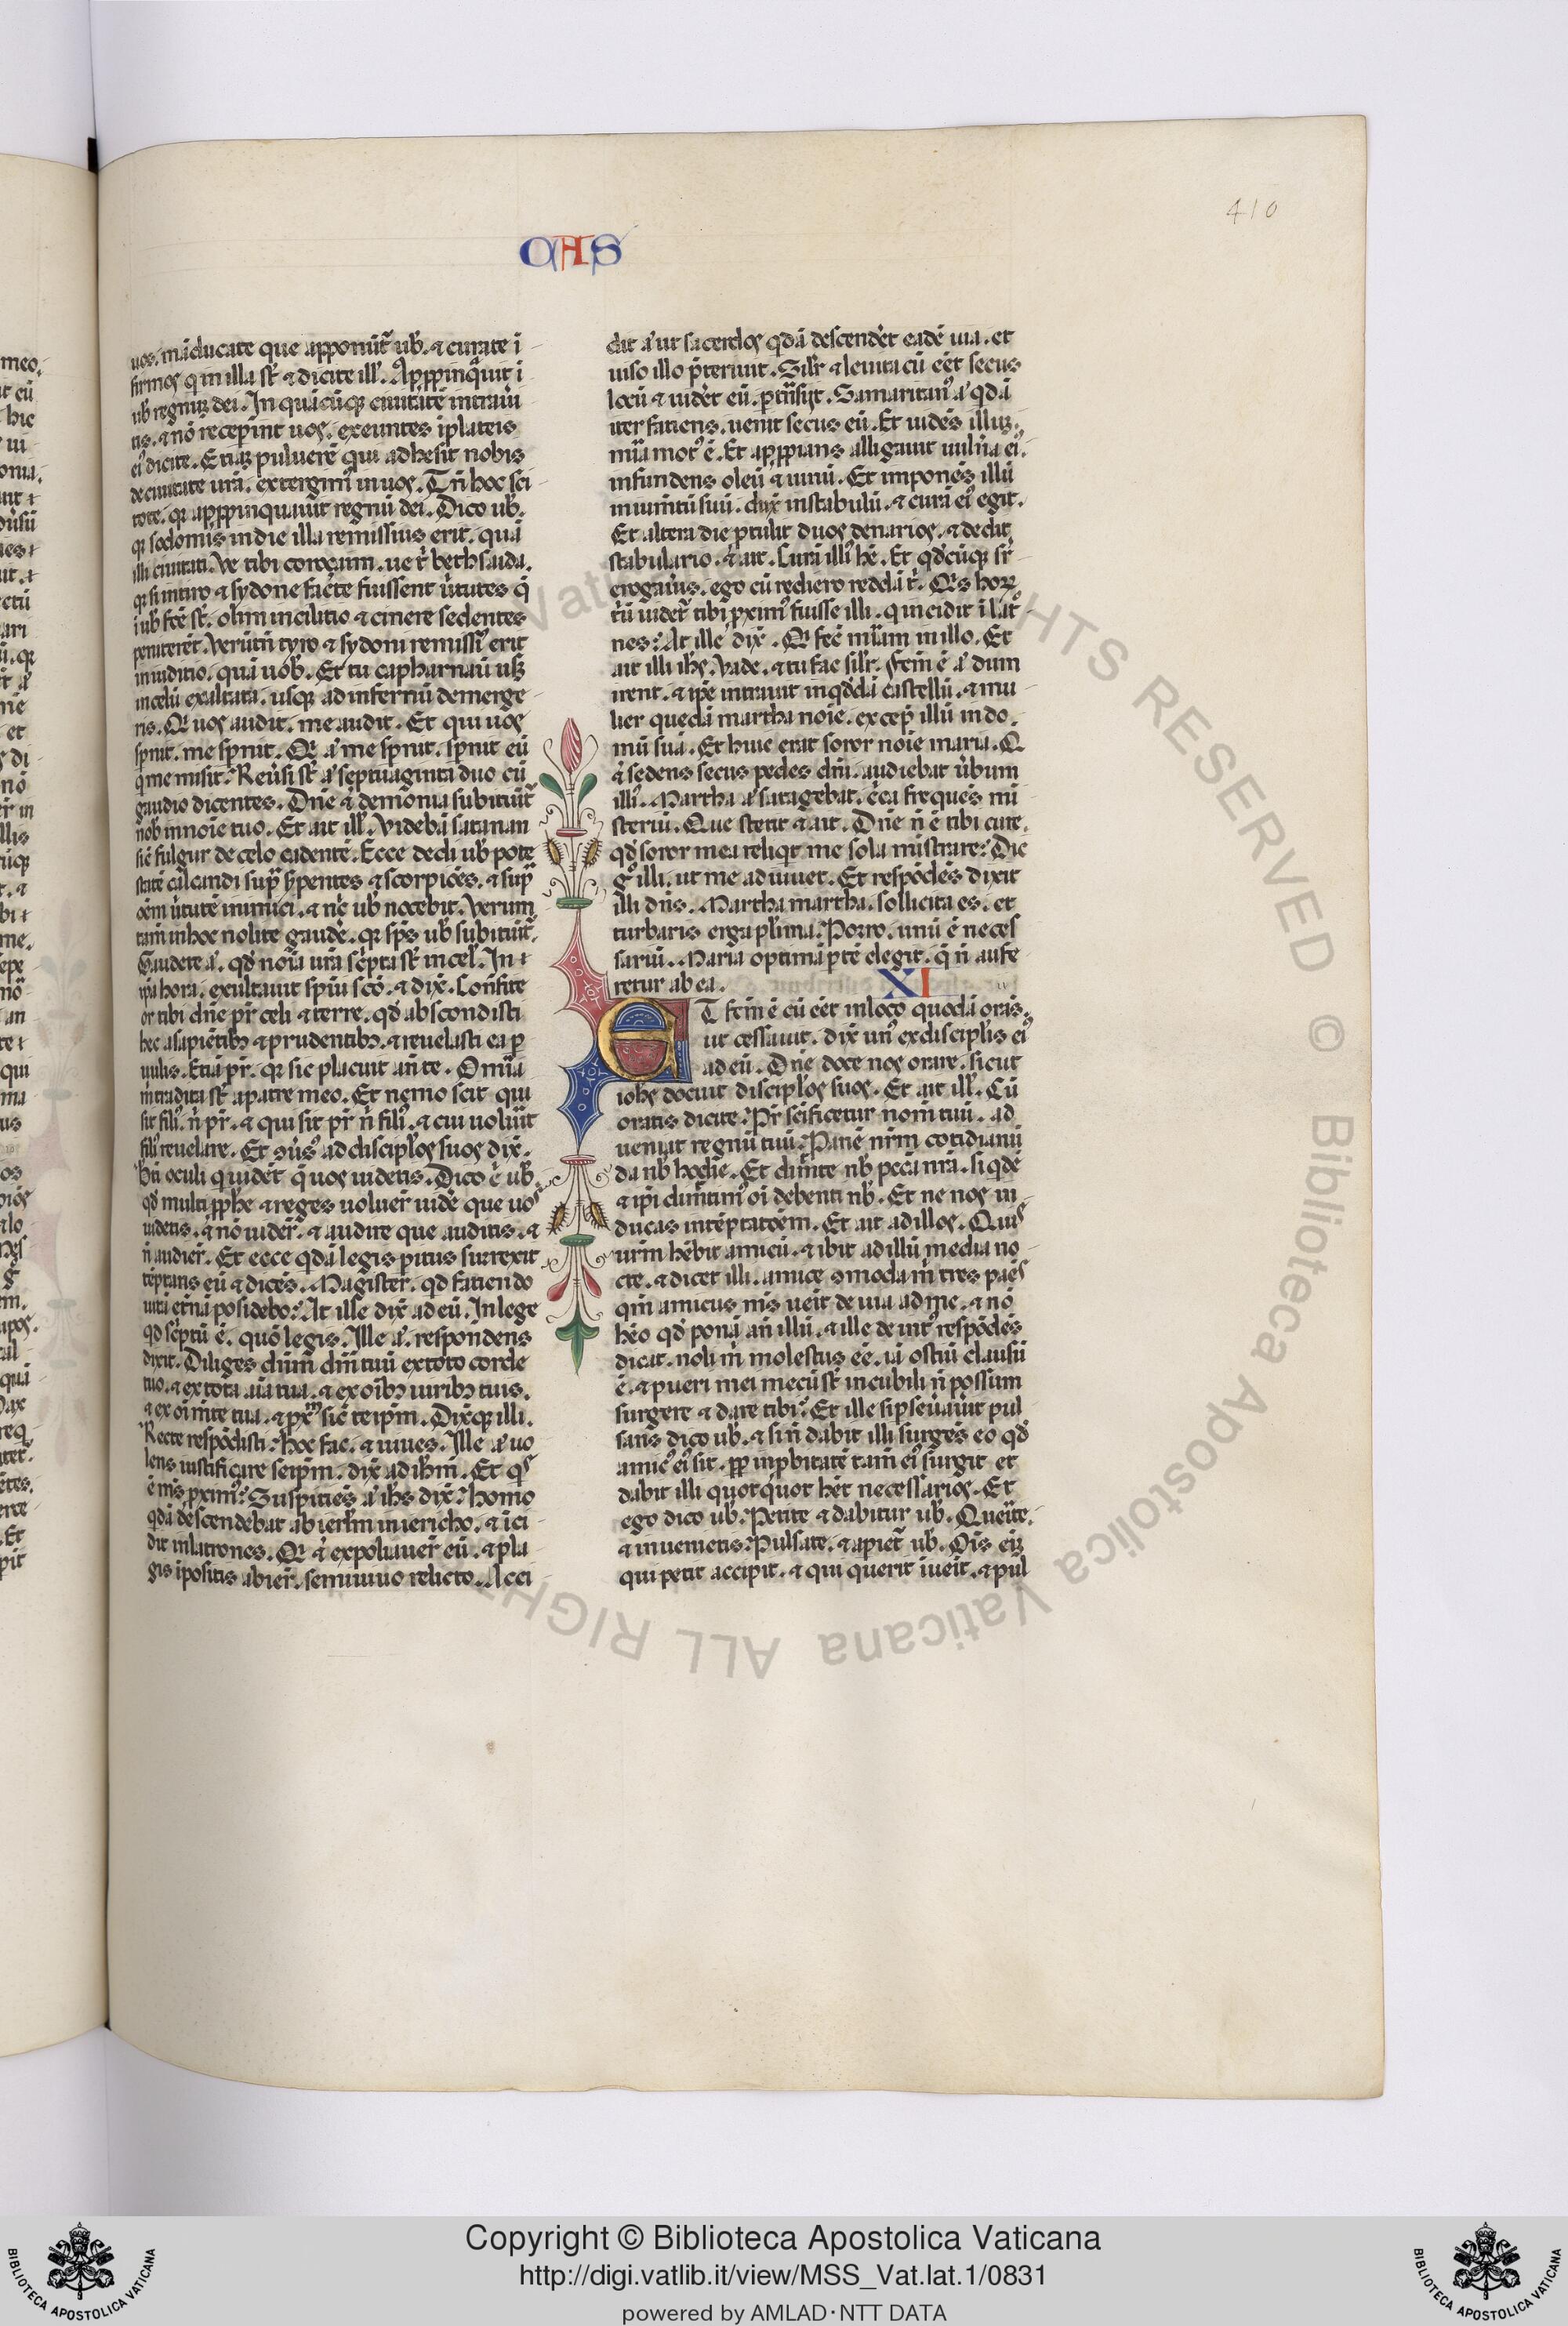 410
CAS
uos. mãducate que apponũt᷑ ub̾. ⁊ curate i
firmos q̃ in illa st̃ ⁊ dicite ill̾. Apꝓpinq̃uit i
ub̾ regnuꝫ dei. In quãcũqꝫ ciuitatẽ intraũi
tis. ⁊ nõ recepĩnt uos. exeuntes i plateis
ei᷒ dicite. Etiaꝫ puluerẽ qui adhesit nobis
de ciuitate ur̃a. extergim᷒ in uos. Tñ hoc sci
tote. qꝛ apꝓpinquauit regnũ dei. Dico ub̾.
qꝛ sodomis in die illa remissius erit. quã
illi ciuitati. Ve tibi coroçaim. ue t̾ bethsaida.
qꝛ si in tiro ⁊ sydone facte fuissent ũtutes q̃
i ub̾ fc̃e st̃. olim in cilitio ⁊ cinere sedentes
peniterẽt. Verũtñ tyro ⁊ sydoni remissi᷒ erit
in iuditio. quã uob̾. Et tu capharnaũ usqꝫ
in celũ exaltata. usqꝫ ad infernũ demerge
ris. Qꝛ uos audit. me audit. Et qui uos
spnit. me spnit. Qꝛ ã me spnit. spnit eũ
q̃ me misit. Reũsi st̃ ã septuaginta duo cũ
gaudio dicentes. Dñe ⁊ demonia subitiũt᷑
nob̾ in noĩe tuo. Et ait ill̾. Videbã satanan
sic̃ fulgur de celo cadentẽ. Ecce dedi ub̾ pote
statẽ calcandi supᷓ s̾pentes ⁊ scorpiões. ⁊ supᷓ
oẽm ũtutẽ inimici. ⁊ nc̃ ub̾ nocebit. Verum
tam̃ in hoc nolite gaudẽ. qꝛ sp̃s ub̾ subitiũt᷑.
Gaudete ã. qd̾ noĩa ur̃a sc̾pta st̃ in cel̾. In i
ip̃a hora. exultauit spũ scõ. ⁊ dix̃. Confite
or tibi dñe pr̃ celi ⁊ terre. qd̾ abscondisti
hec a sapiẽtibꝫ ⁊ prudentibꝫ. ⁊ reuelasti ea p
uulis. Etiã pr̃. qꝛ sic placuit añ te. Omĩa
m̾ tradita st̃ a patre meo. Et nemo scit qui
sit fili᷒. n̾ pr̃. ⁊ qui sit pr̃ n̾ fili᷒. ⁊ cui uolũit
fili᷒ reuelare. Et 9ũs᷒ ad discipl̾os suos dix̃.
Bt̃i oculi q uidẽt q̃ uos uidetis. Dico ẽ ub̾.
qd̾ multi ꝓph̾e ⁊ reges uoluer̃ uidẽ que uos
uidetis. ⁊ nõ uider̃. ⁊ audire que auditis. ⁊
ñ audier̃. Et ecce qdã legis p̾itus surrexit
tẽptans eũ ⁊ dicẽs. Magister. qd faciendo
uitã et̾nã posidebo. At ille dix̃ ad eũ. In lege
qd sc̾ptũ ẽ. quõ legis. Ille ã. respondens
dixit. Diliges dñm dñm tuũ ex toto corde
tuo. ⁊ ex tota aĩa tua. ⁊ ex oĩbꝫ uiribꝫ tuis.
⁊ ex oĩ mẽte tua. ⁊ px̃m sic̃ teip̃m. Dix̃qꝫ illi.
Recte respõdisti. hoc fac. ⁊ uiues. Ille ã uo
lens iustificare seip̃m. dix̃ ad ihm̃. Et qs
ẽ m̾s ꝓxim᷒. Suspitiẽs ã ihs̃ dix̃. homo
qdã descendebat ab ierl̃m in iericho. ⁊ ici
dit in latrones. Qꝛ ⁊ expoliauer̃ eũ. ⁊ pla
gis ipositis abier̃. semiuiuo relicto. Acci
dit ã ut sacerdos qdã descenderet eadẽ uia. et
uiso illo p̃teriuit. Silr̃ ⁊ leuita cũ eẽt secus
locũ ⁊ uidẽt eũ. p̾trãsijt. Samaritan᷒ ã qdã
iter faciens. uenit secus eũ. Et uidẽs illuꝫ.
mĩa mot᷒ ẽ. Et apꝓpians alligauit uuln̾a ei᷒.
infundens oleũ ⁊ uinũ. Et imponẽs illũ
in iumẽtũ suũ. dux̃ in stabulũ. ⁊ curã ei᷒ egit.
Et altera die p̾tulit duos denarios. ⁊ dedit
stabulario. ⁊ ait. Curã illi᷒ hẽ. Et qd̾cũqꝫ sr̃
erogaũis. ego cũ rediero reddã t̾. Qs horꝝ
t̾ũ uidet᷑ tibi ꝓxim᷒ fuisse illi. q incidit i lat̾
nes. At ille dix̃. Qꝛ fec̃ mĩam in illo. Et
ait illi ihs̃. Vade. ⁊ tu fac silr̃. Fcm̃ ẽ ã dum
irent. ⁊ ip̃e intrauit in qd̾dã castellũ. ⁊ mu
lier quedã martha noĩe. excep̃ illũ in do.
mũ suã. Et huic erat soror noĩe maria. Q
⁊ sedens secus pedes dñi. audiebat ũbum
illi᷒. Martha ã satagebat. c̾ca frequẽs mi
steriũ. Que stetit ⁊ ait. Dñe ñ ẽ tibi cure.
qd̾ soror mea reliqt me solã mistrare. Dic
g̃ illi. ut me adiuuet. Et respõdẽs dixit
illi dñs. Martha martha. sollicita es. et
turbaris erga pl̾ima. Porro. unũ ẽ neces
sariũ. Maria optimã p̾tẽ elegit. q̃ ñ aufe
retur ab ea.
XI
ET fcm̃ ẽ cũ eẽt in loco quodã orãs.
ut cessauit. dix̃ un᷒ ex discipl̾is ei᷒
ad eũ. Dñe doce nos orare. sicut
iohẽs docuit discipl̾os suos. Et ait ill̾. Cũ
oratis dicite. Pr̃ sc̃ificetur nom̃ tuũ. ad
ueniat regnũ tuũ. Panẽ nr̃m cotidianũ
da nb̾ hodie. Et dimĩte nb̾ pec̃a nr̃a. siqdẽ
⁊ ip̃i dimĩtim᷒ oĩ debenti nb̾. Et ne nos in
ducas in tẽptatõem. Et ait ad illos. Quis
ur̃m hẽbit amicũ. ⁊ ibit ad illũ media no
cte. ⁊ dicet illi. amice 9moda m̾ tres paẽs
qm̃ amicus m̾s ueĩt de uia ad me. ⁊ nõ
hẽo qd̾ ponã añ illũ. ⁊ ille de int᷒ respõdẽs
dicat. noli m̾ molestus eẽ. iã ostiũ clausũ
ẽ. ⁊ pueri mei mecũ st̃ in cubili ñ possum
surgere ⁊ dare tibi. Et ille si pseũauit pul
sans dico ub̾. ⁊ si ñ dabit illi surgẽs eo qd̾
amic᷒ ei᷒ sit. ꝓp inp̾bitatẽ tam̃ ei᷒ surgit et
dabit illi quotquot hẽt necessarios. Et
ego dico ub̾. Petite ⁊ dabitur ub̾. Querite.
⁊ inuenietis. Pulsate. ⁊ apiet᷑ ub̾. Oĩs eĩꝫ
qui petit accipit. ⁊ qui querit iueĩt. ⁊ pul
Copyright © Biblioteca Apostolica Vaticana
http://digi.vatlib.it/view/MSS_Vat.lat.1/0831
powered by AMLAD·NTT DATA
BIBLIOTECA APOSTOLICA VATICANA
BIBLIOTECA APOSTOLICA VATICANA